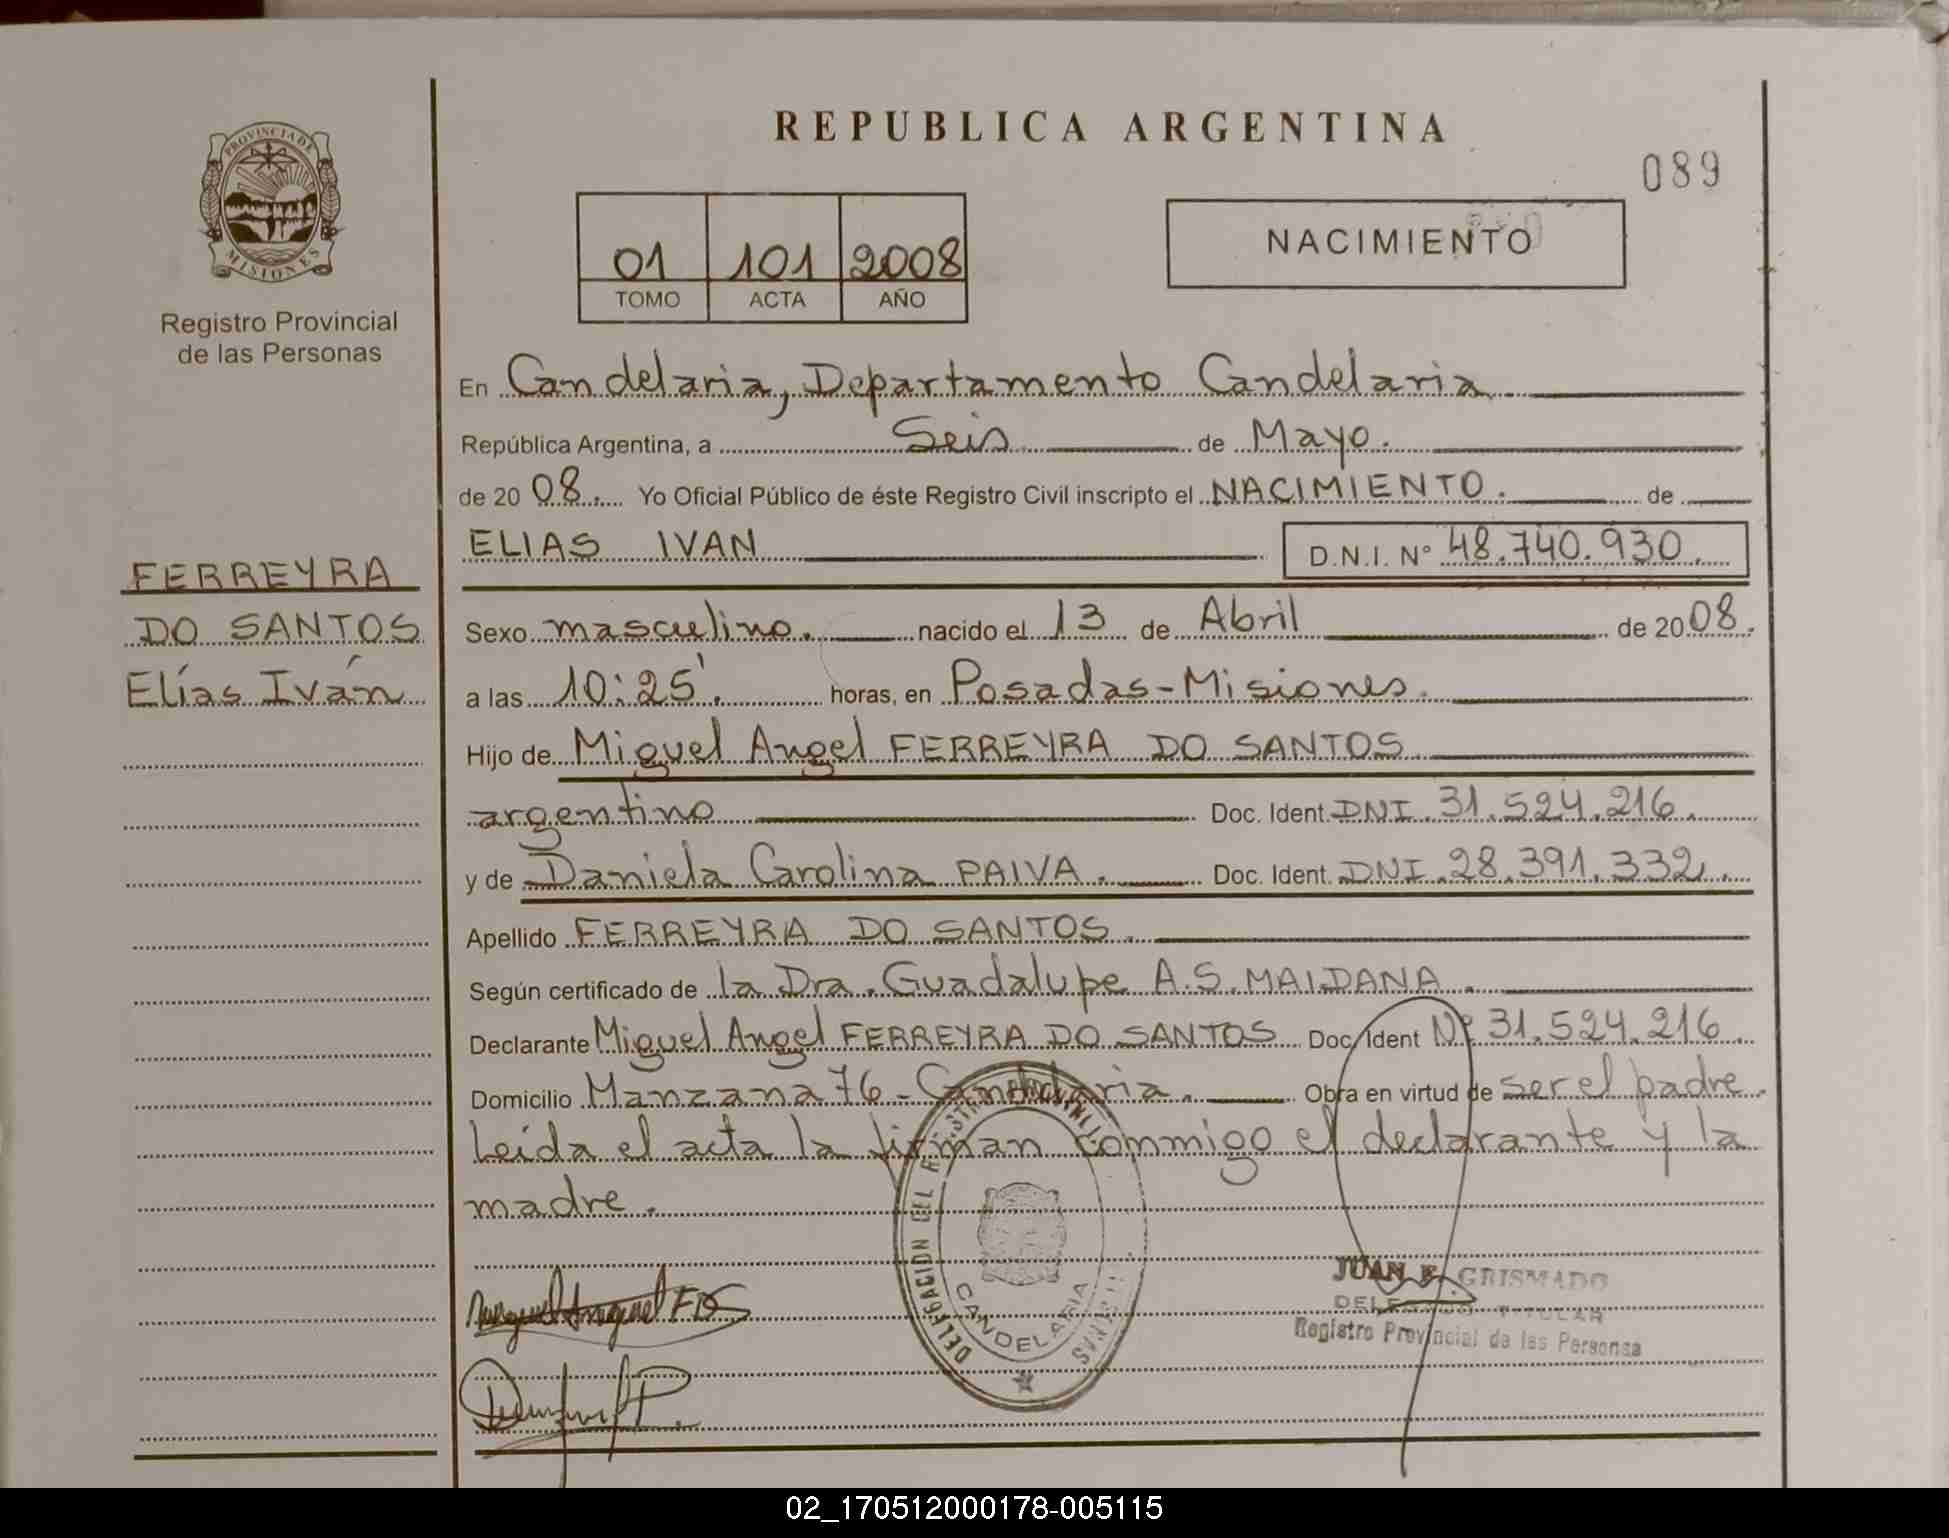 REPUBLICA ARGENTINA
089
PROVINCIA DE
MISIONES
Registro Provincial
de las Personas
01 101 2008
TOMO ACTA AÑO
NACIMIENTO
En Candelaria, Departamento Candelaria
República Argentina, a Seis de Mayo.
de 20 08. Yo Oficial Público de éste Registro Civil inscripto el NACIMIENTO. de
ELIAS IVAN D.N.I. Nº 48.740.930.
FERREYRA
DO SANTOS
Elías Iván
Sexo masculino. nacido el 13 de Abril de 20 08.
a las 10:25'. horas, en Posadas-Misiones.
Hijo de Miguel Angel FERREYRA DO SANTOS
argentino Doc. Ident. DNI. 31.524.216.
y de Daniela Carolina PAIVA. Doc. Ident. DNI. 28.391.332.
Apellido FERREYRA DO SANTOS.
Según certificado de la Dra. Guadalupe A.S. MAIDANA.
Declarante Miguel Angel FERREYRA DO SANTOS Doc. Ident Nº 31.524.216.
Domicilio Manzana 76 - Candelaria. Obra en virtud de ser el padre.
Leída el acta la firman conmigo el declarante y la
madre.
DELEGACION DEL
CANDELARIA
JUAN E. GRISMADO
DELEGADO TITULAR
Registro Provincial de las Personas
02_170512000178-005115